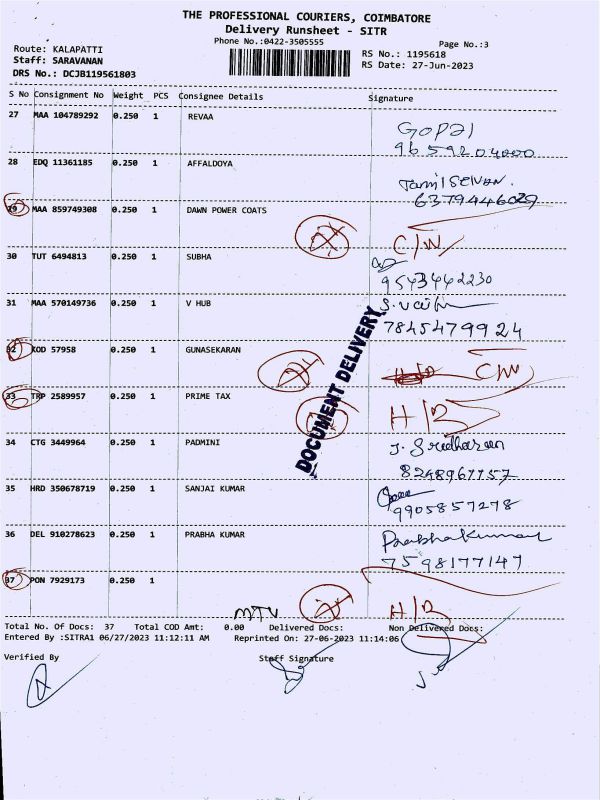 THE PROFESSIONAL COURIERS, COIMBATORE
Delivery Runsheet - SITR
Phone No.:0422-3505555
Page No.:3
Route: KALAPATTI
Staff: SARAVANAN
DRS No.: DCJB119561803
RS No.: 1195618
RS Date: 27-Jun-2023
S No Consignment No Weight PCS Consignee Details Signature
27 MAA 104789292 0.250 1 REVAA
Gopal
9659204000
28 EDQ 11361185 0.250 1 AFFALDOYA
Tamilselvan.
6379446029
29 MAA 859749308 0.250 1 DAWN POWER COATS
C/W
30 TUT 6494813 0.250 1 SUBHA
9543442230
31 MAA 570149736 0.250 1 V HUB
7845479924
32 KOD 57958 0.250 1 GUNASEKARAN
C/W
33 TRP 2589957 0.250 1 PRIME TAX
H/B
DOCUMENT DELIVERY
34 CTG 3449964 0.250 1 PADMINI
J. Sridharan
8248967757
35 HRD 350678719 0.250 1 SANJAI KUMAR
9905857278
36 DEL 910278623 0.250 1 PRABHA KUMAR
Prabhakumar
7598177147
37 PON 7929173 0.250 1
MTV
H/B
Total No. Of Docs: 37 Total COD Amt: 0.00 Delivered Docs: Non Delivered Docs:
Entered By :SITRA1 06/27/2023 11:12:11 AM Reprinted On: 27-06-2023 11:14:06
Verified By Staff Signature